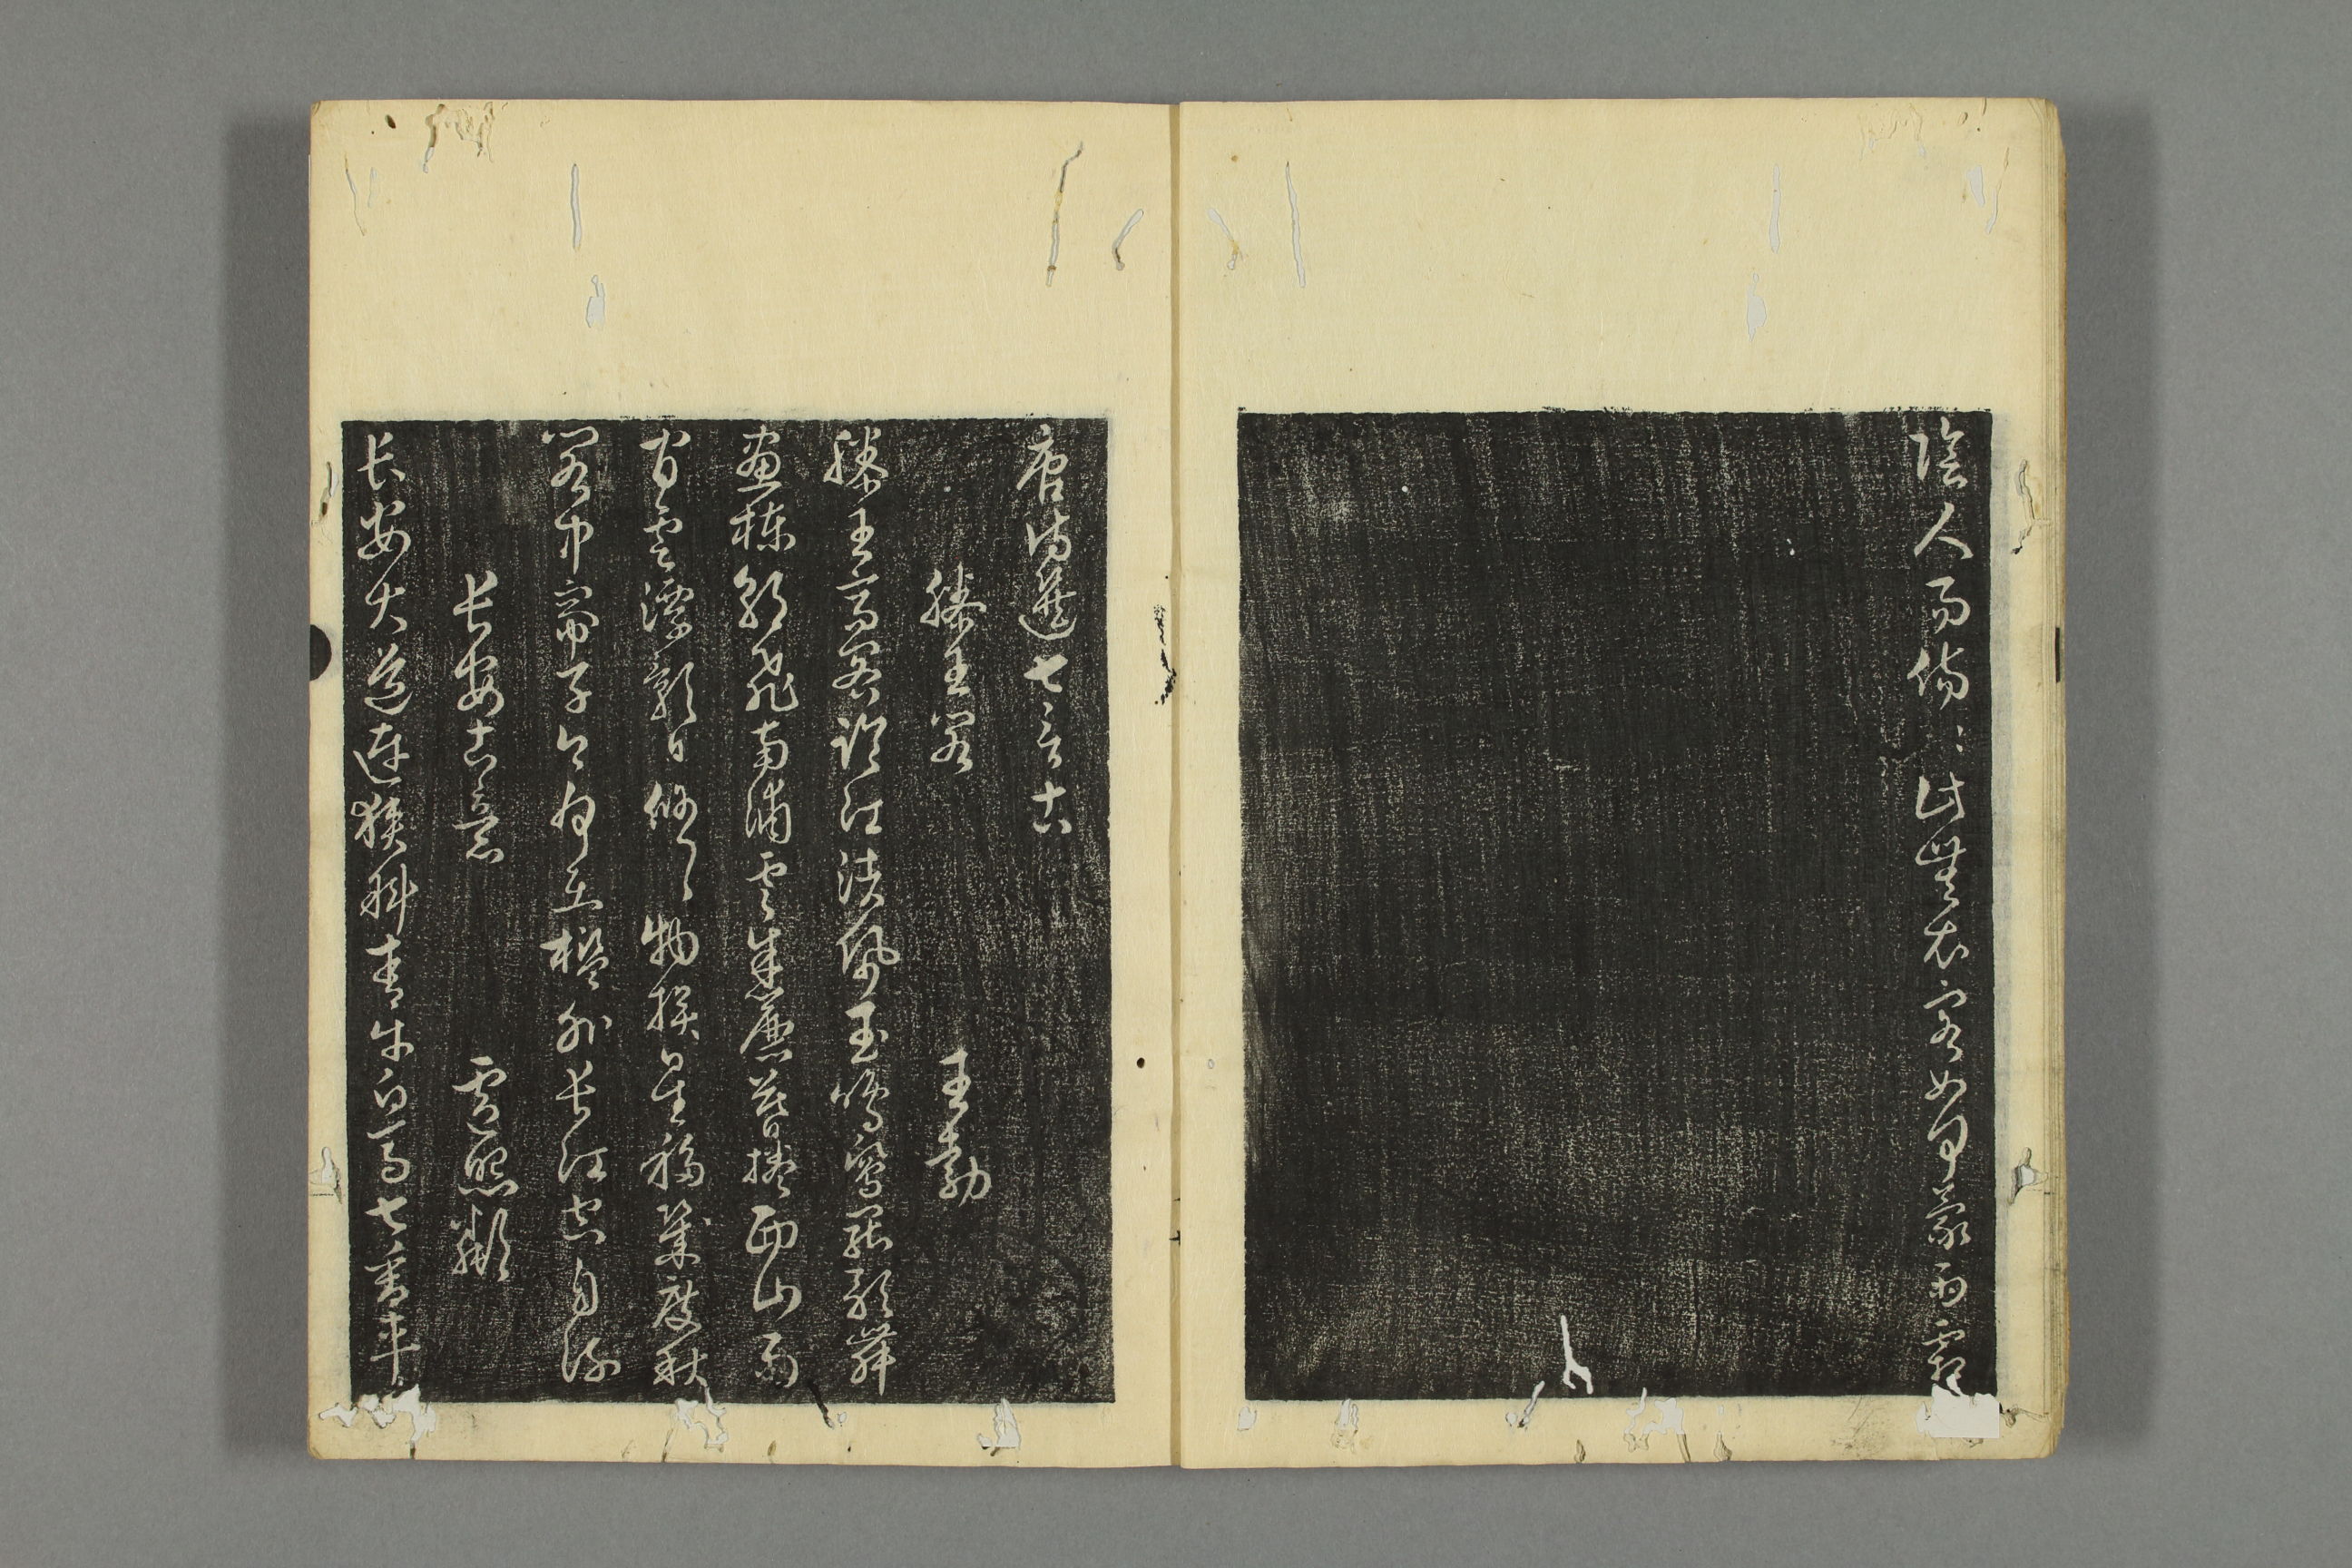 陰人易傷〻此無衣客如何蒙雨霜
唐詩選七言古
滕王閣 王勃
滕王高閣臨江渚佩玉鳴鸞罷歌舞
畫棟朝飛南浦雲朱簾暮捲西山雨
閒雲潭影日悠〻物換星移幾度秋
閣中帝子今何在檻外長江空自流
長安古意 盧照鄰
長安大道連狹斜青牛白馬七香車